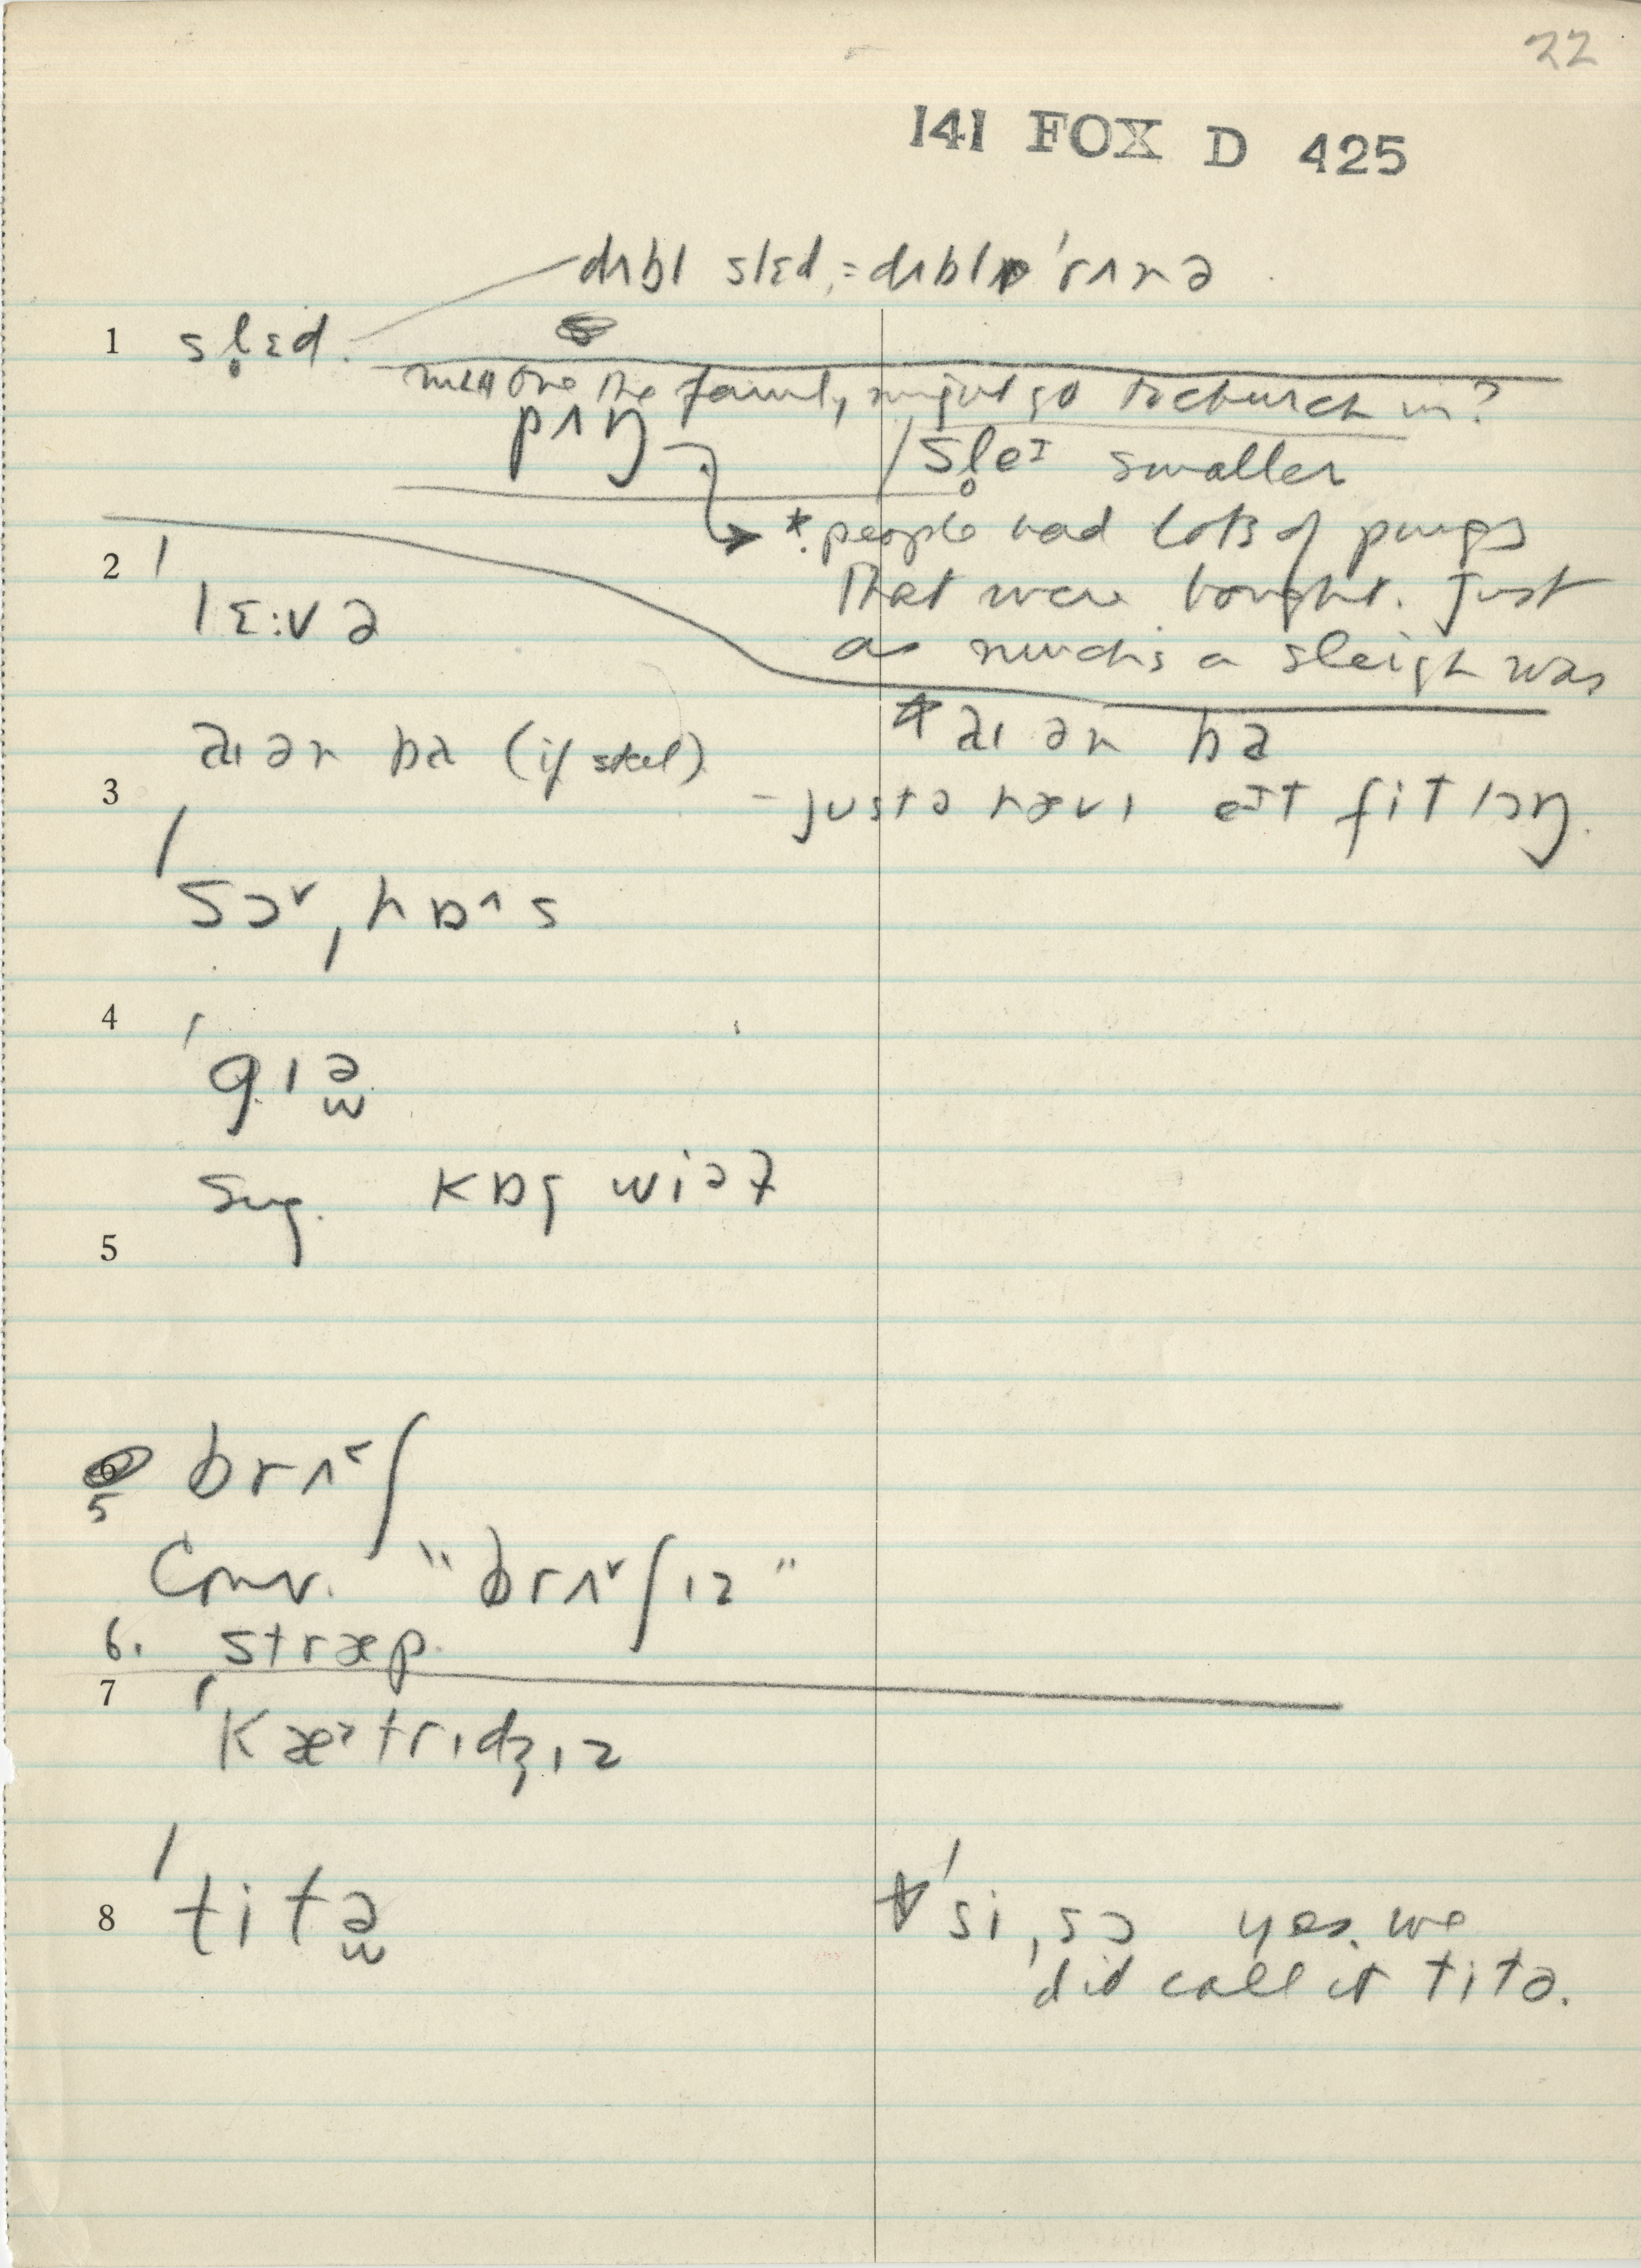 22
141 FOX D 425
dʌbl slɛd, = dʌbl 'rʌnə
1 sl̥ɛd.
one the family might go to church in?
pʌŋ / sl̥eɪ smaller
*people had lots of pungs
2 'lɛ:və
that were bought. Just
as much's a sleigh was
aɪən bɑ (if steel)
*aɪən bɑ
3
- just ə hævɪ eɪt fit lɔŋ.
'sɔ˅ˌhɒ^s
4 'gɪə̫
Sug. kɒg wiəl
5
6
5 brʌ˂ʃ
Conv. "brʌ˅ʃɪz"
6. stræp.
7 'kæ˃trɪdʒɪz
8 'titə̫
*'siˌsɔ yes, we
did call it titə.